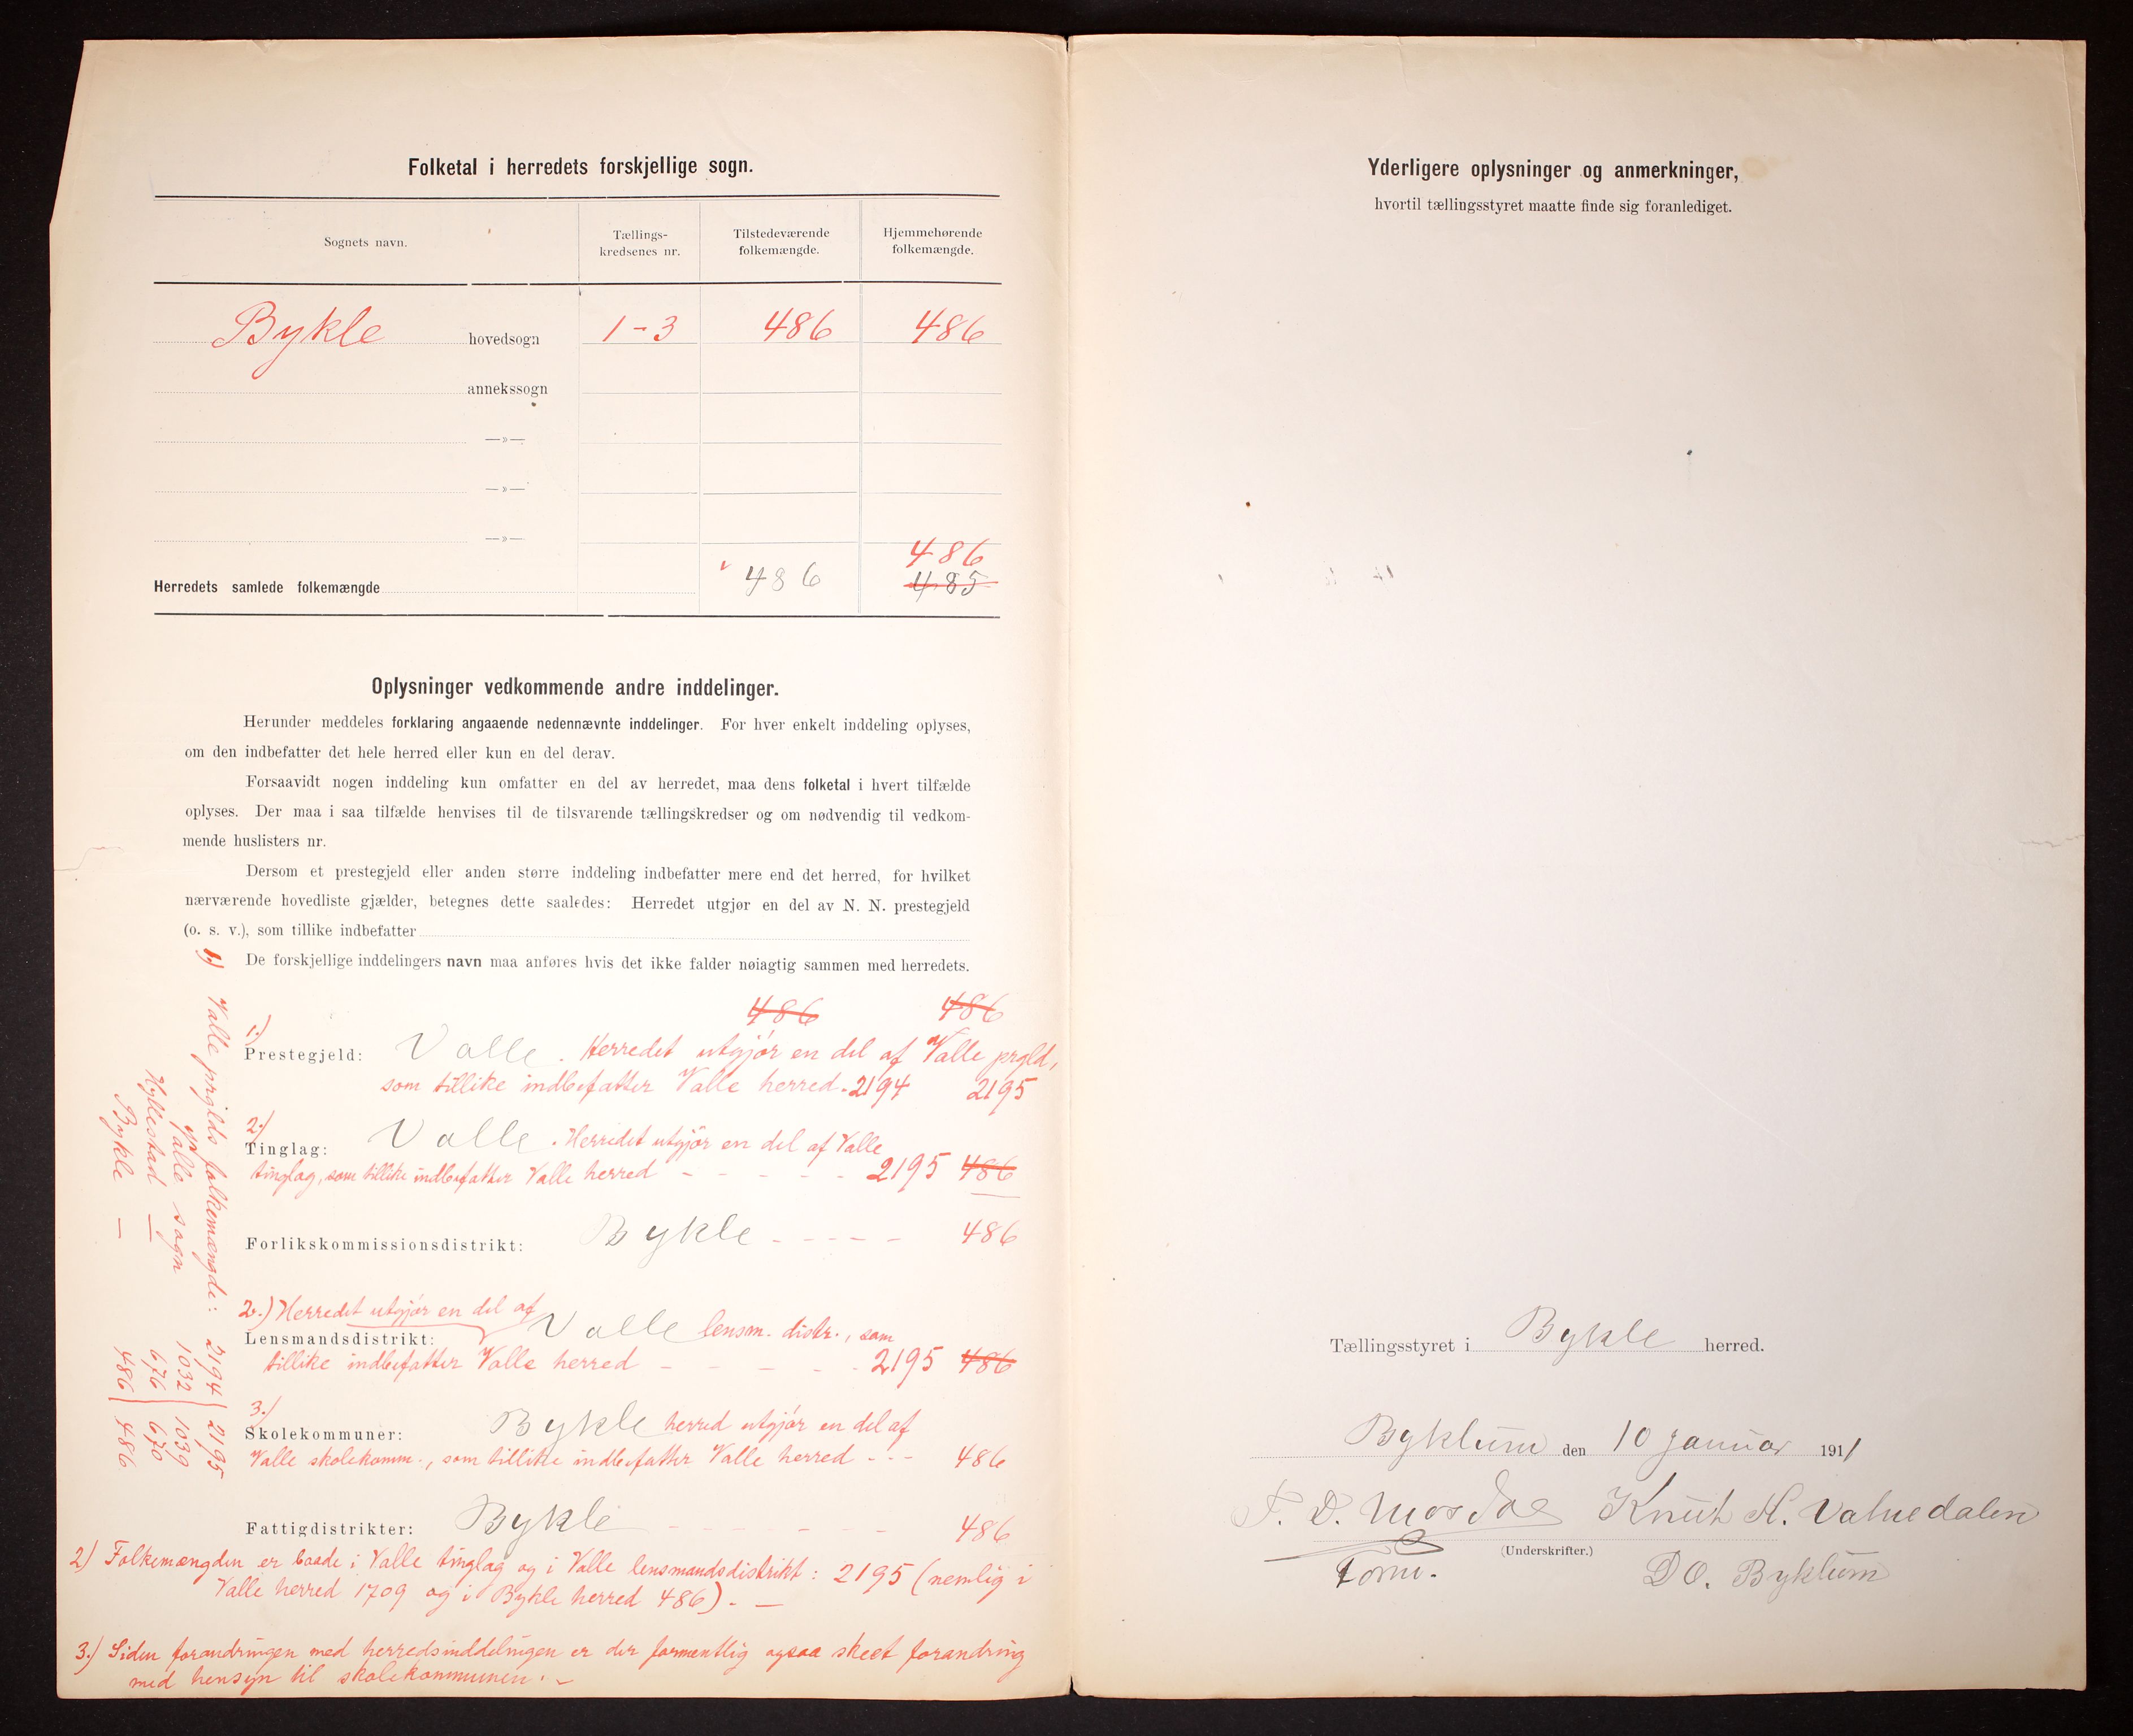 Folketal i herredets forskjellige sogn.
Sognets navn. Tællings-kredsenes nr. Tilstedeværende folkemængde. Hjemmehørende folkemængde.
Bykle hovedsogn 1-3 486 486
annekssogn
—»—
—»—
—»—
486
Herredets samlede folkemængde 486 485
Oplysninger vedkommende andre inddelinger.
Herunder meddeles forklaring angaaende nedennævnte inddelinger. For hver enkelt inddeling oplyses,
om den indbefatter det hele herred eller kun en del derav.
Forsaavidt nogen inddeling kun omfatter en del av herredet, maa dens folketal i hvert tilfælde
oplyses. Der maa i saa tilfælde henvises til de tilsvarende tællingskredser og om nødvendig til vedkom-
mende huslisters nr.
Dersom et prestegjeld eller anden større inddeling indbefatter mere end det herred, for hvilket
nærværende hovedliste gjælder, betegnes dette saaledes: Herredet utgjør en del av N. N. prestegjeld
(o. s. v.), som tillike indbefatter
De forskjellige inddelingers navn maa anføres hvis det ikke falder nøiagtig sammen med herredets.
486 486
1.) Prestegjeld: Valle. Herredet utgjør en del af Valle prgld,
som tillike indbefatter Valle herred. 2194 2195
2.) Tinglag: Valle. Herredet utgjør en del af Valle
tinglag, som tillike indbefatter Valle herred - - - - - 2195 486
Forlikskommissionsdistrikt: Bykle - - - - - 486
2.) Herredet utgjør en del af
Lensmandsdistrikt: Valle lensm. distr., som
tillike indbefatter Valle herred - - - - - 2195 486
3.) Skolekommuner: Bykle herred utgjør en del af
Valle skolekomm., som tillike indbefatter Valle herred - - - 486
Fattigdistrikter: Bykle - - - - - - 486
2) Folkemængden er baade i Valle tinglag og i Valle lensmandsdistrikt: 2195 (nemlig i
Valle herred 1709 og i Bykle herred 486). —
3.) Siden forandringen med herredsinddelingen er der formentlig ogsaa skeet forandring
med hensyn til skolekommunen. -
1.) Valle prgjlds folkemængde: 2194 2195
Valle sogn 1032 1039
Hyllestad — 676 670
Bykle — 486 486
Yderligere oplysninger og anmerkninger,
hvortil tællingsstyret maatte finde sig foranlediget.
Tællingsstyret i Bykle herred.
Byklum den 10 januar 1911
T. D. Mosdøl Knut H. Vatnedalen
(Underskrifter.)
Form. D O. Byklum